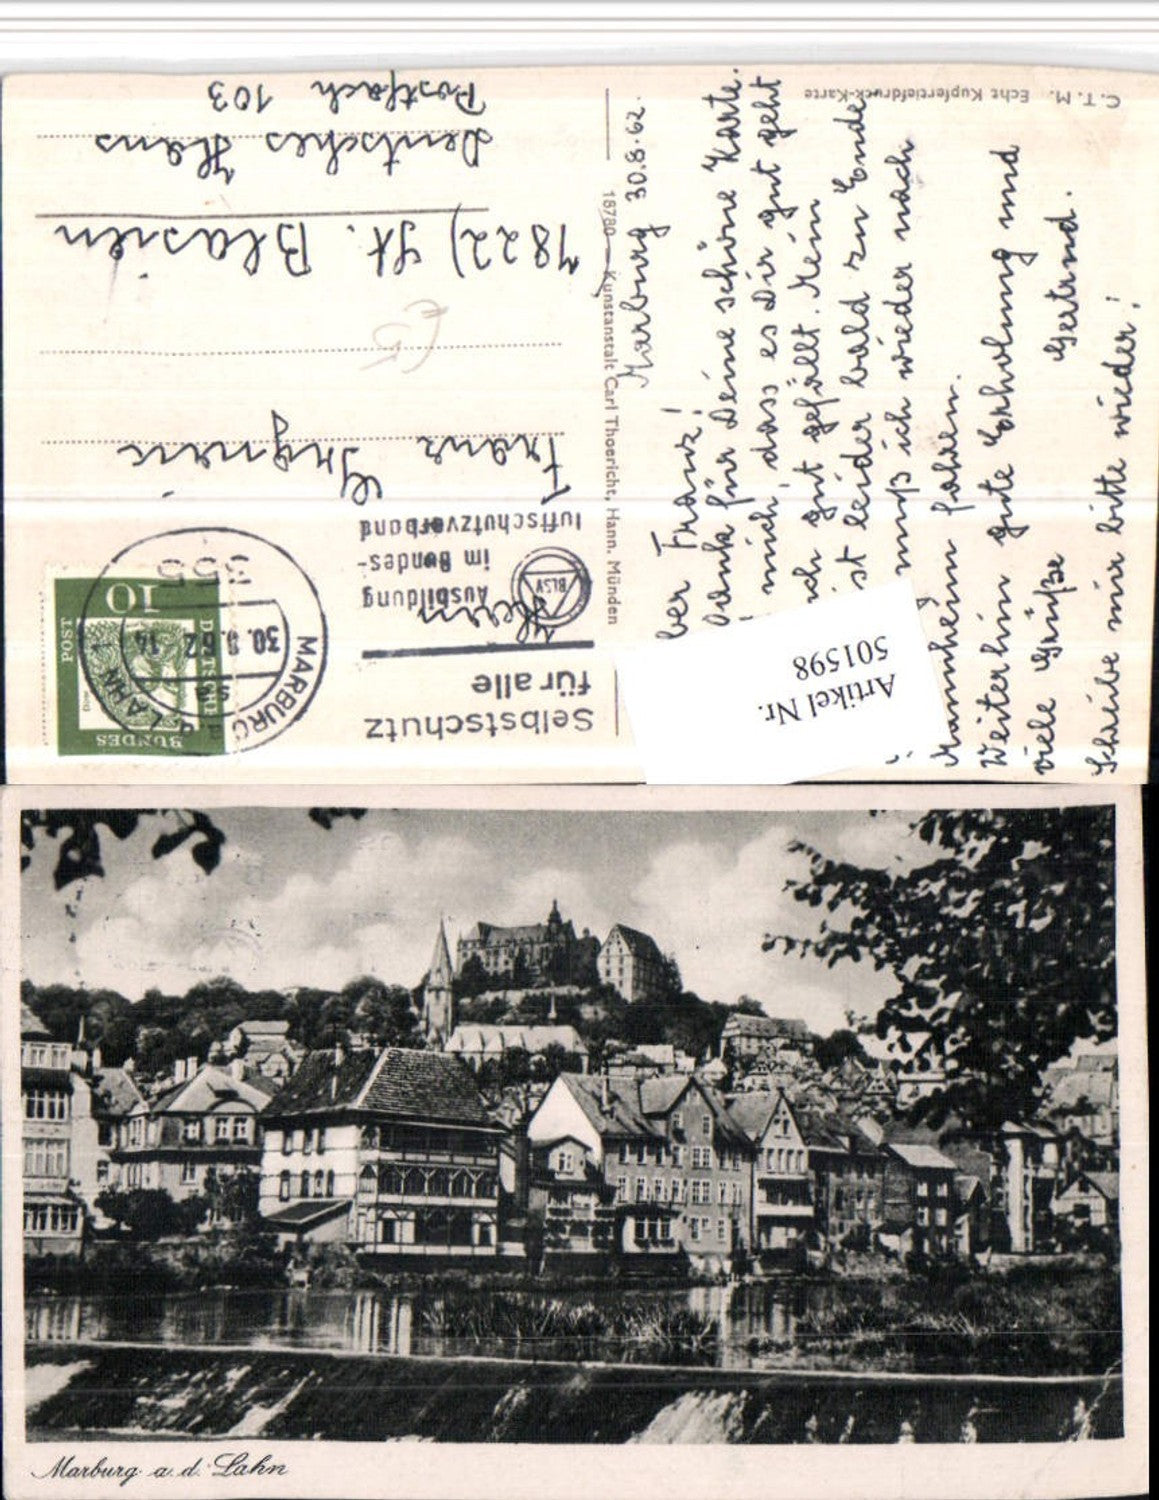 C.T.M. Echt Kupfertiefdruck-Karte
Marburg 30.8.62.
ber Franz!
Dank für Deine schöne Karte.
mich, dass es Dir gut geht
gut gefällt. Mein
ist leider bald zu Ende
muß ich wieder nach
Mannheim fahren.
Weiterhin gute Erholung und
viele Grüße Gertrud.
Schreibe mir bitte wieder!
Artikel Nr.
501598
18780 Kunstanstalt Carl Thoericht, Hann. Münden
Selbstschutz
für alle
BLSV
Ausbildung
im Bundes-
luftschutzverband
MARBURG
LAHN 1
30. 8.62.14
355
DEUTSCHE
BUNDES
POST
10
Herrn
Franz
7822) St. Blasien
Deutsches Haus
Postfach 103
Marburg a. d. Lahn